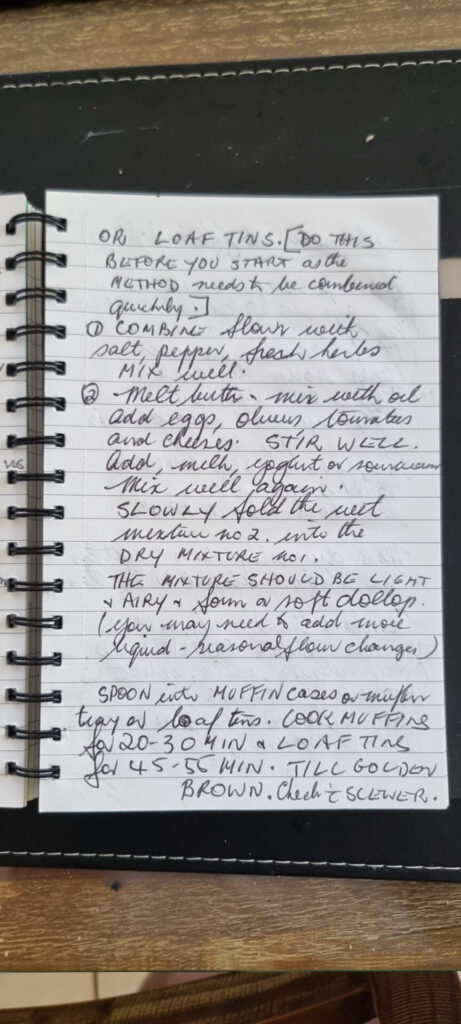 OR LOAF TINS. [DO THIS
BEFORE YOU START as the
METHOD needs to be combined
quickly.]
① COMBINE flour with
salt, pepper, fresh herbs
MIX well.
② Melt butter. mix with oil
add eggs, olives tomatoes
and cheeses. STIR WELL.
Add, milk, yoghurt or sourcream
Mix well again.
SLOWLY fold the wet
mixture no 2. into the
DRY MIXTURE no 1.
THE MIXTURE SHOULD BE LIGHT
& AIRY & form a soft dollop.
(you may need to add more
liquid - seasonal flour changes)
SPOON into MUFFIN cases or muffin
tray or loaf tins. COOK MUFFINS
for 20-30 MIN & LOAF TINS
for 45-55 MIN. TILL GOLDEN
BROWN. Check c̄ SCEWER.